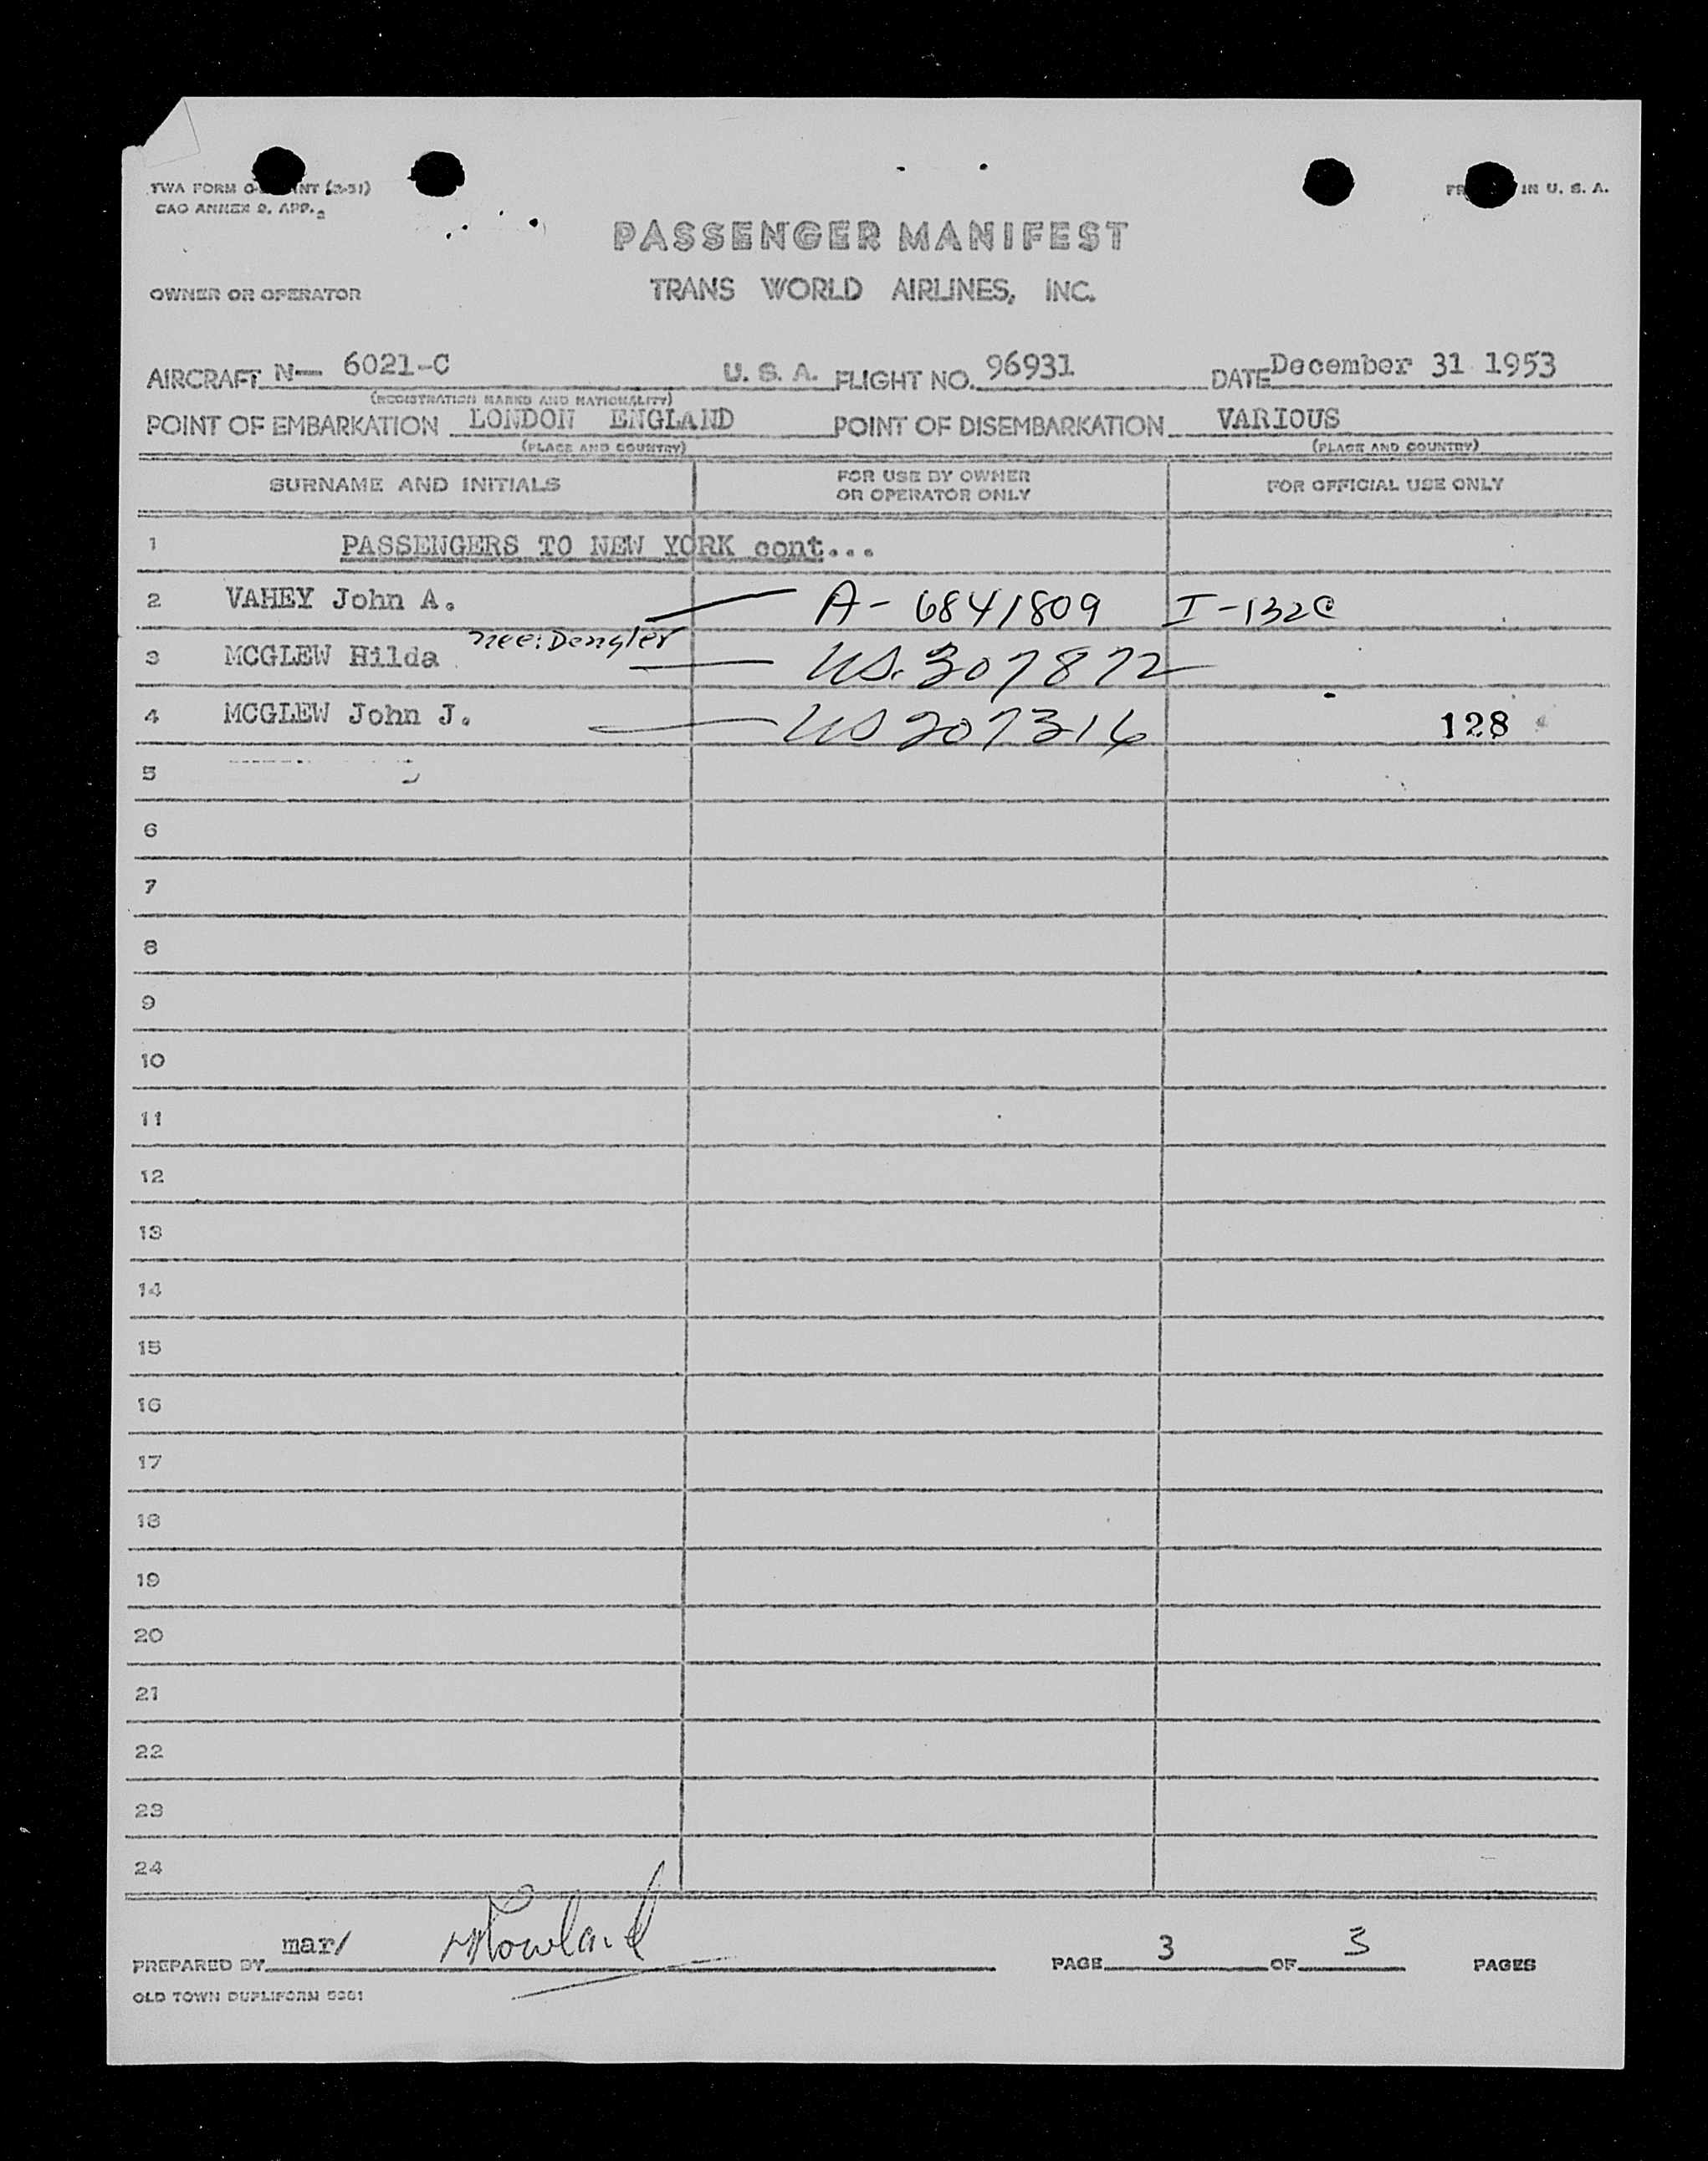 TWA FORM O- INT (3-51)
CAO ANNEX 9, APP. 2
IN U. S. A.
PASSENGER MANIFEST
OWNER OR OPERATOR TRANS WORLD AIRLINES, INC.
AIRCRAFT N— 6021-C U. S. A. FLIGHT NO. 96931 DATE December 31 1953
(REGISTRATION MARKS AND NATIONALITY)
POINT OF EMBARKATION LONDON ENGLAND POINT OF DISEMBARKATION VARIOUS
(PLACE AND COUNTRY) (PLACE AND COUNTRY)
SURNAME AND INITIALS FOR USE BY OWNER OR OPERATOR ONLY FOR OFFICIAL USE ONLY
1 PASSENGERS TO NEW YORK cont...
2 VAHEY John A. A- 6841809 I-132C
3 MCGLEW Hilda nee: Dengler US. 307872
4 MCGLEW John J. US 207316 128
5
6
7
8
9
10
11
12
13
14
15
16
17
18
19
20
21
22
23
24
PREPARED BY mar/ Rowland PAGE 3 OF 3 PAGES
OLD TOWN DUPLIFORM